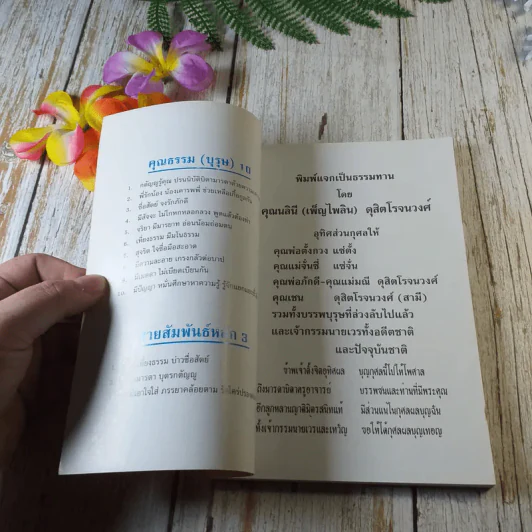 คุณธรรม (บุรุษ) 10
1. กตัญญูรู้คุณ ปรนนิบัติบิดามารดาด้วยความ
2. พี่รักน้อง น้องเคารพพี่ ช่วยเหลือเกื้อกูลกัน
3. ซื่อสัตย์ จงรักภักดี
4. มีสัจจะ ไม่โกหกหลอกลวง พูดแล้วต้องทำ
5. จริยา มีมารยาท อ่อนน้อมถ่อมตน
6. เที่ยงธรรม มีมโนธรรม
7. สุจริต ใจซื่อมือสะอาด
8. มีความละอาย เกรงกลัวต่อบาป
9. มีเมตตา ไม่เบียดเบียนกัน
10. มีปัญญา หมั่นศึกษาหาความรู้
สายสัมพันธ์หลัก 3
เที่ยงธรรม บ่าวซื่อสัตย์
มารดา บุตรกตัญญู
เอาใจใส่ ภรรยาคล้อยตาม
พิมพ์แจกเป็นธรรมทาน
โดย
คุณนลินี (เพ็ญไพลิน) ดุสิตโรจนวงศ์
อุทิศส่วนกุศลให้
คุณพ่อตั้งกวง แซ่ตั้ง
คุณแม่จั่นซี่ แซ่จัน
คุณพ่อภักดี-คุณแม่มณี ดุสิตโรจนวงศ์
คุณเชน ดุสิตโรจนวงศ์ (สามี)
รวมทั้งบรรพบุรุษที่ล่วงลับไปแล้ว
และเจ้ากรรมนายเวรทั้งอดีตชาติ
และปัจจุบันชาติ
ข้าพเจ้าตั้งจิตอุทิศผล บุญกุศลนี้ไปให้ไพศาล
ถึงมารดาบิดาครูอาจารย์ บรรพชนและท่านที่มีพระคุณ
อีกลูกหลานญาติมิตรสนิทแท้ มีส่วนแน่ในกุศลผลบุญฉัน
ทั้งเจ้ากรรมนายเวรและเทวัญ ขอให้ได้กุศลผลบุญเทอญ